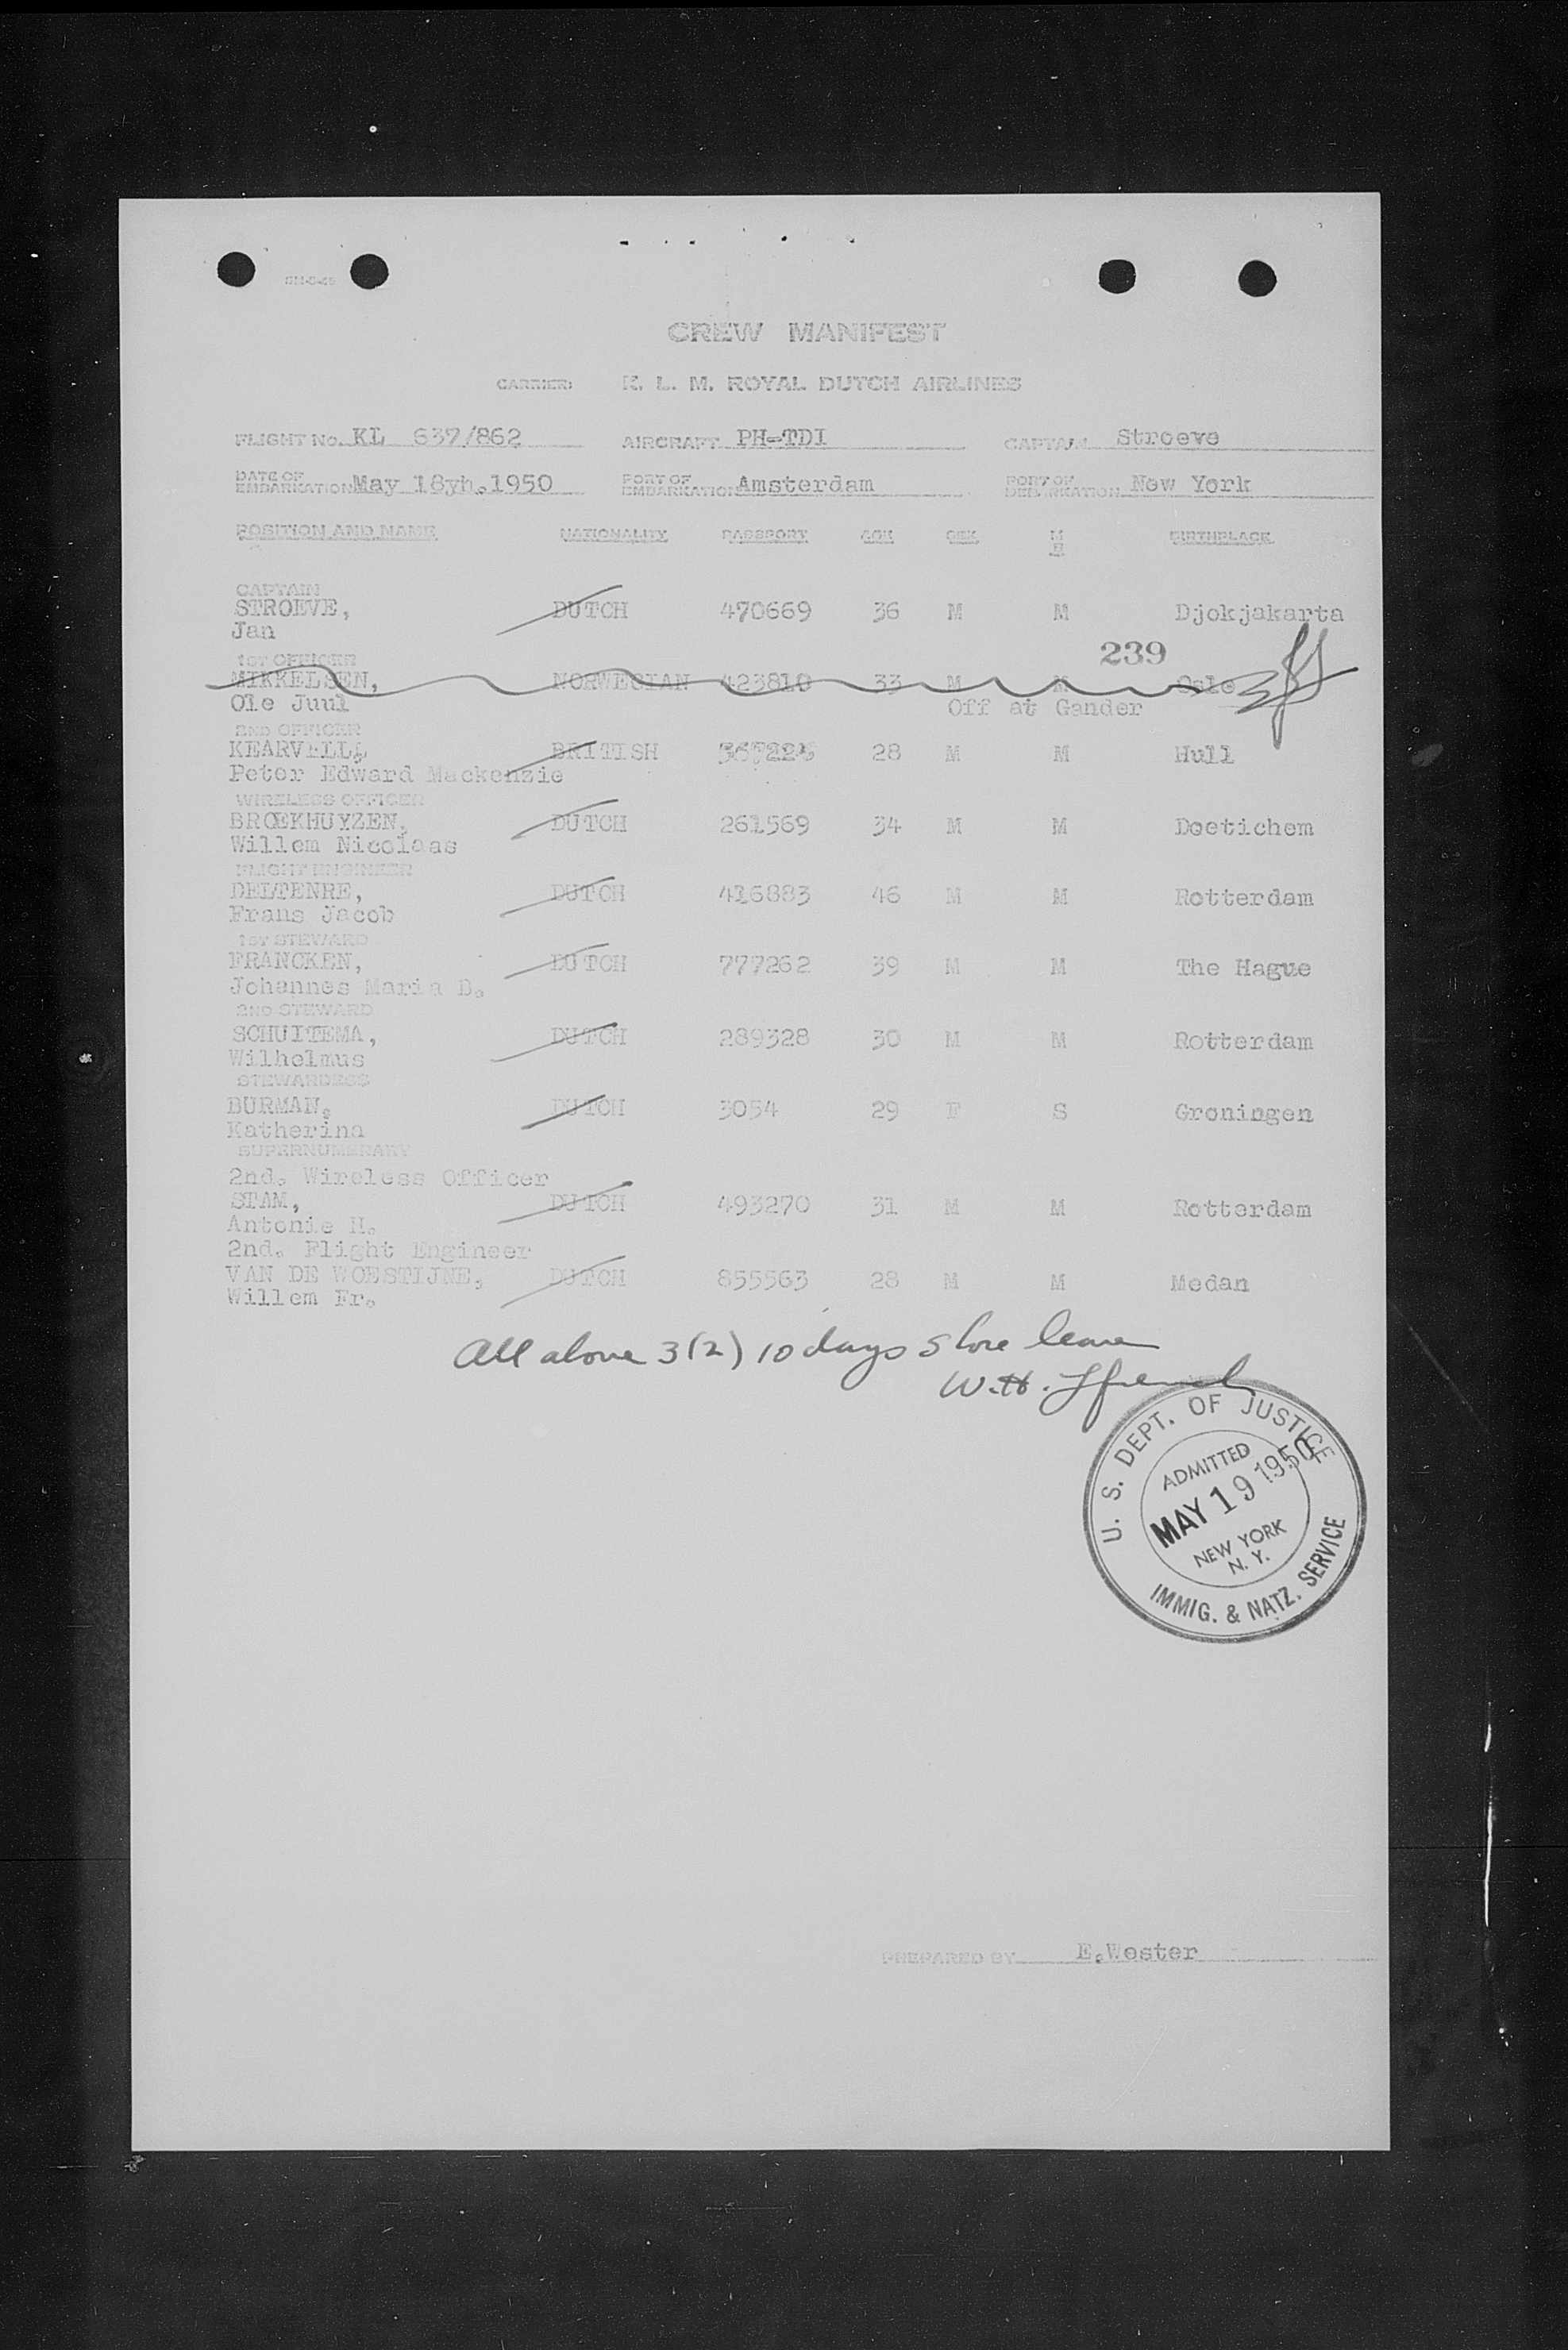 CREW MANIFEST
CARRIER: K. L. M. ROYAL DUTCH AIRLINES
FLIGHT No. KL 637/862 AIRCRAFT PH-TDI CAPTAIN Stroeve
DATE OF EMBARKATION May 18yh.1950 PORT OF EMBARKATION Amsterdam PORT OF DEBARKATION New York
POSITION AND NAME NATIONALITY PASSPORT AGE SEX M S BIRTHPLACE
CAPTAIN
STROEVE, DUTCH 470669 36 M M Djokjakarta
Jan
239
1ST OFFICER
MIKKELSEN, NORWEGIAN 423810 33 M M Oslo
Ole Juul Off at Gander
2ND OFFICER
KEARVELL, BRITISH 28 M M Hull
Peter Edward Mackenzie
WIRELESS OFFICER
BROEKHUYZEN, DUTCH 261569 34 M M Doetichem
Willem Nicolaas
FLIGHT ENGINEER
DELTENRE, DUTCH 416883 46 M M Rotterdam
Frans Jacob
1ST STEWARD
FRANCKEN, DUTCH 777262 39 M M The Hague
Johannes Maria B.
2ND STEWARD
SCHUITEMA, DUTCH 289328 30 M M Rotterdam
Wilhelmus
STEWARDESS
BURMAN, DUTCH 3054 29 F S Groningen
Katherina
SUPERNUMERARY
2nd. Wireless Officer
STAM, DUTCH 493270 31 M M Rotterdam
Antonie H.
2nd. Flight Engineer
VAN DE WOESTIJNE, DUTCH 855563 28 M M Medan
Willem Fr.
All above 3(2) 10 days shore leave
W.H.
U. S. DEPT. OF JUSTICE
ADMITTED
MAY 19 1950
NEW YORK
N. Y.
IMMIG. & NATZ. SERVICE
PREPARED BY E.Wester